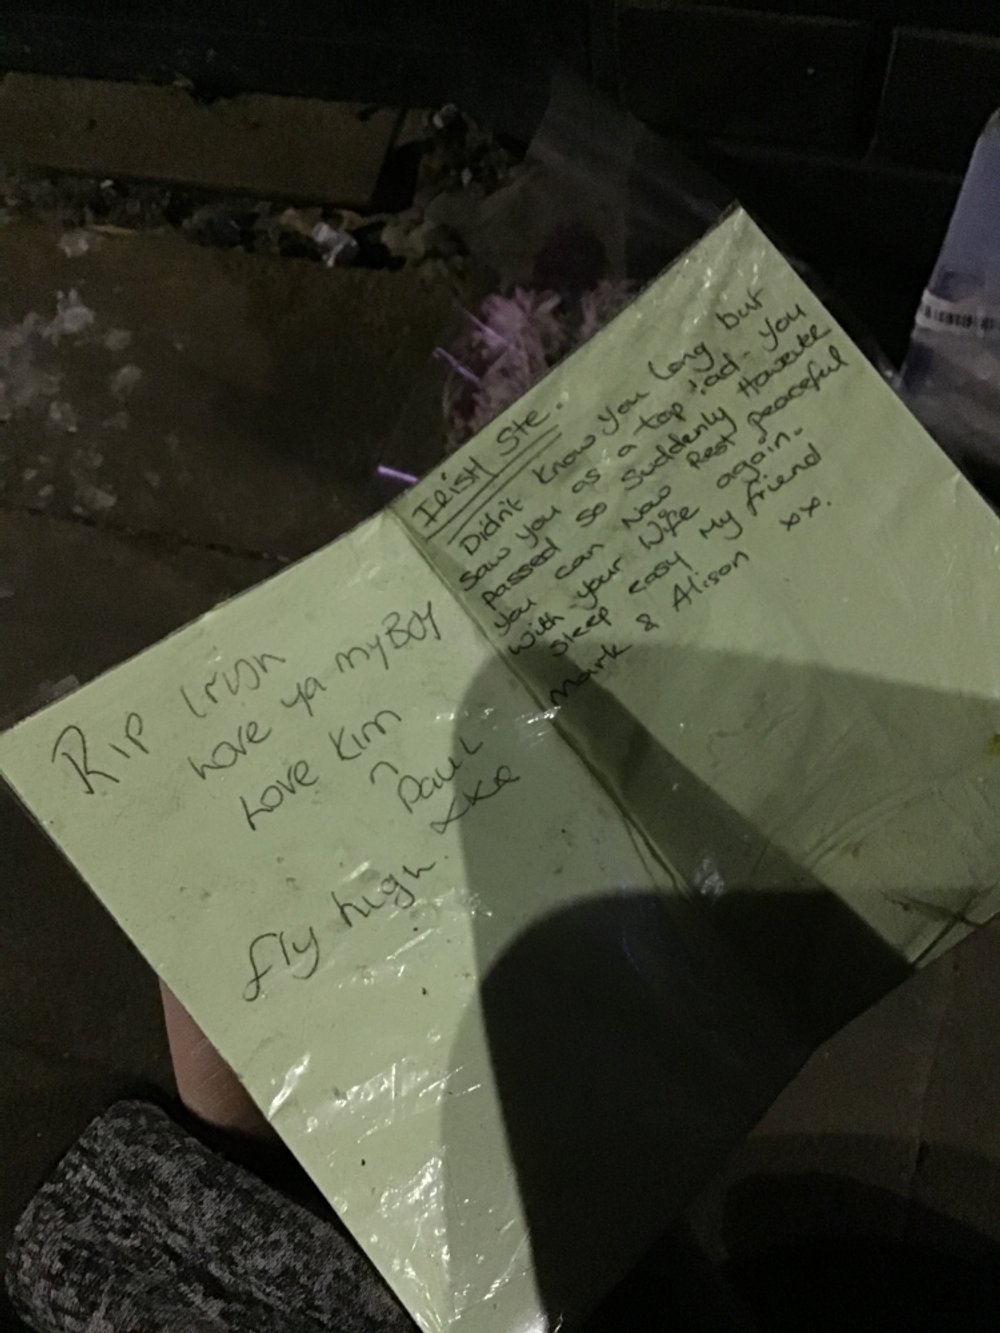 Rip Irish
Love ya my BOY
Love Kim
Paul
xxx
fly high
IRISH Ste.
Didn't know you long but
saw you as a top lad. you
passed so suddenly However
you can Now Rest peaceful
with your Wife again.
Sleep easy My friend
Mark & Alison xx.